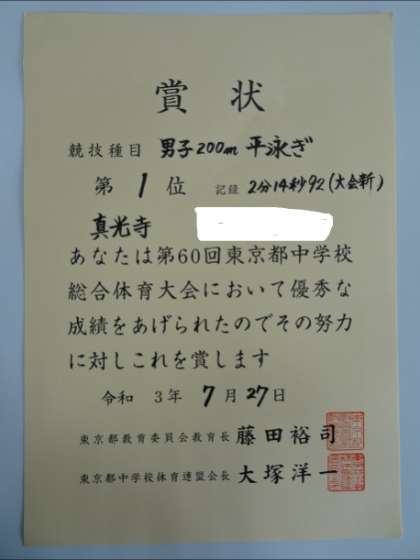 賞状
競技種目 男子200m平泳ぎ
第1位 記録 2分14秒92(大会新)
真光寺
あなたは第60回東京都中学校
総合体育大会において優秀な
成績をあげられたのでその努力
に対しこれを賞します
令和 3年 7月27日
東京都教育委員会教育長 藤田裕司
東京都中学校体育連盟会長 大塚洋一